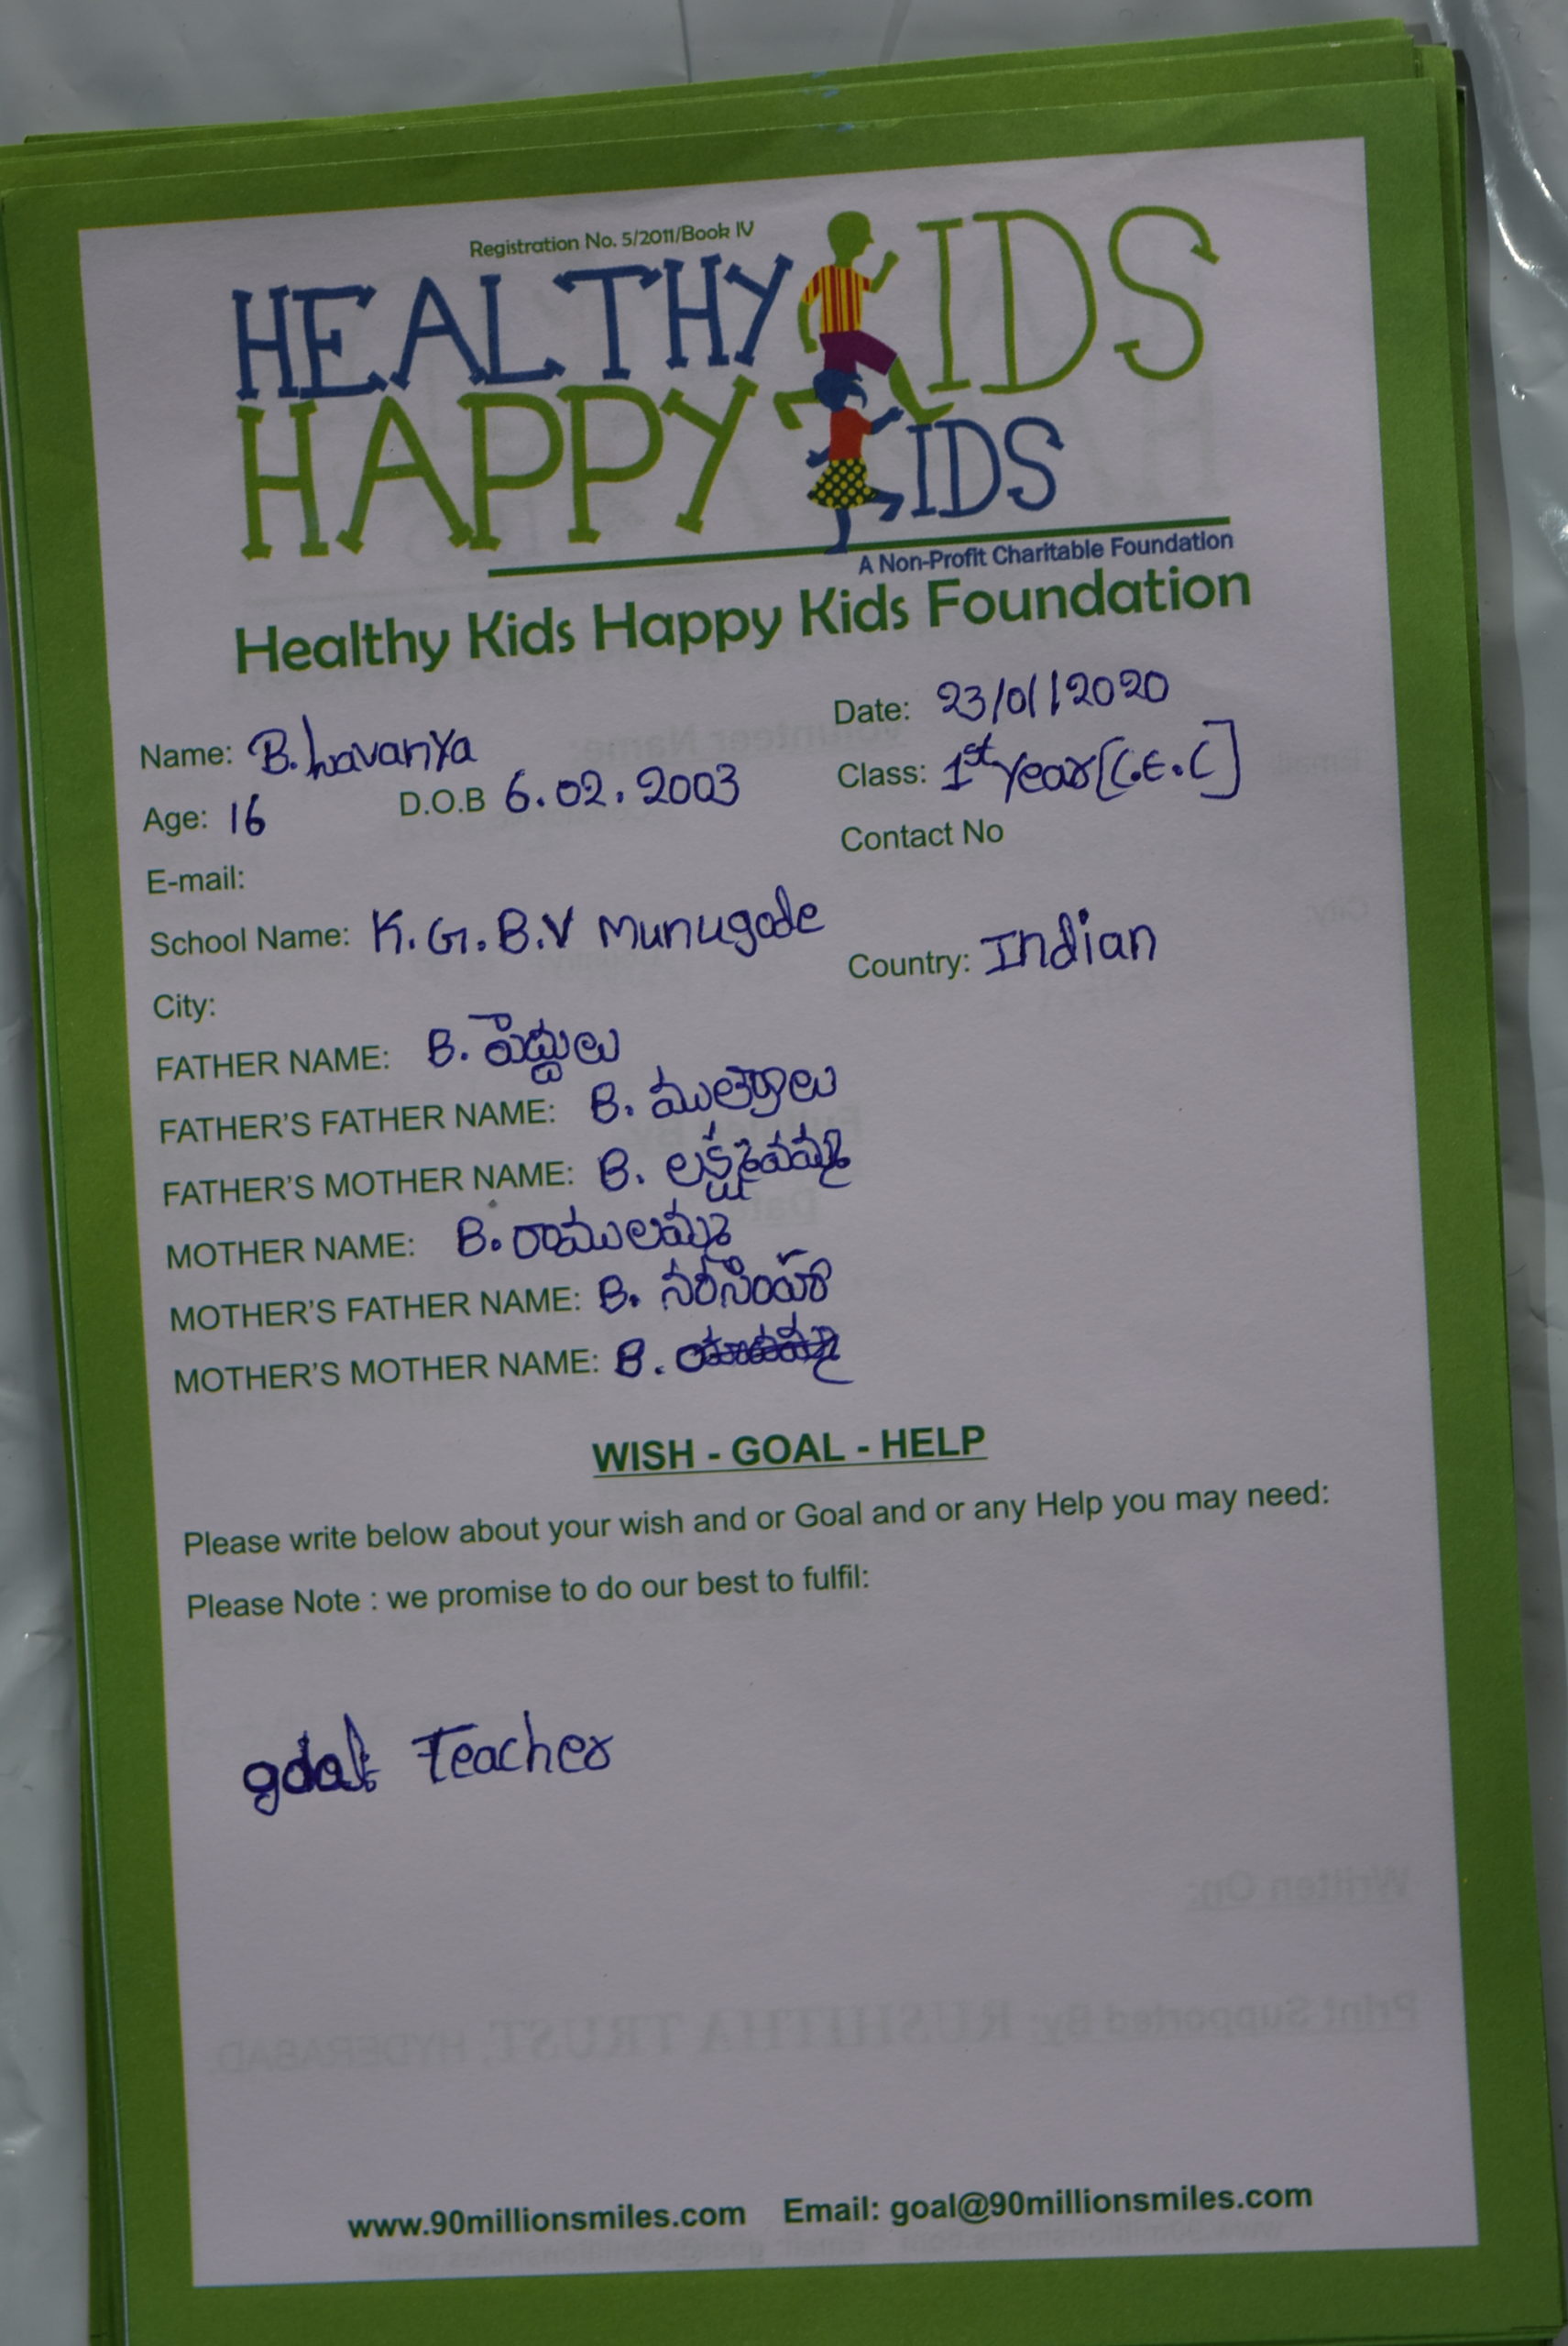 Registration No. 5/2011/Book IV
HEALTHY KIDS
HAPPY KIDS
A Non-Profit Charitable Foundation
Healthy Kids Happy Kids Foundation
Date: 23/01/2020
Name: B. Lavanya
Class: 1st year [C.E.C]
Age: 16 D.O.B 6.02.2003
Contact No
E-mail:
School Name: K.G.B.V Munugode
Country: Indian
City:
FATHER NAME: B. పెద్దులు
FATHER'S FATHER NAME: B. ముత్యాలు
FATHER'S MOTHER NAME: B. లక్ష్మమ్మ
MOTHER NAME: B. రాములమ్మ
MOTHER'S FATHER NAME: B. నర్సింహా
MOTHER'S MOTHER NAME: B.
WISH - GOAL - HELP
Please write below about your wish and or Goal and or any Help you may need:
Please Note : we promise to do our best to fulfil:
goal: Teacher
www.90millionsmiles.com Email: goal@90millionsmiles.com